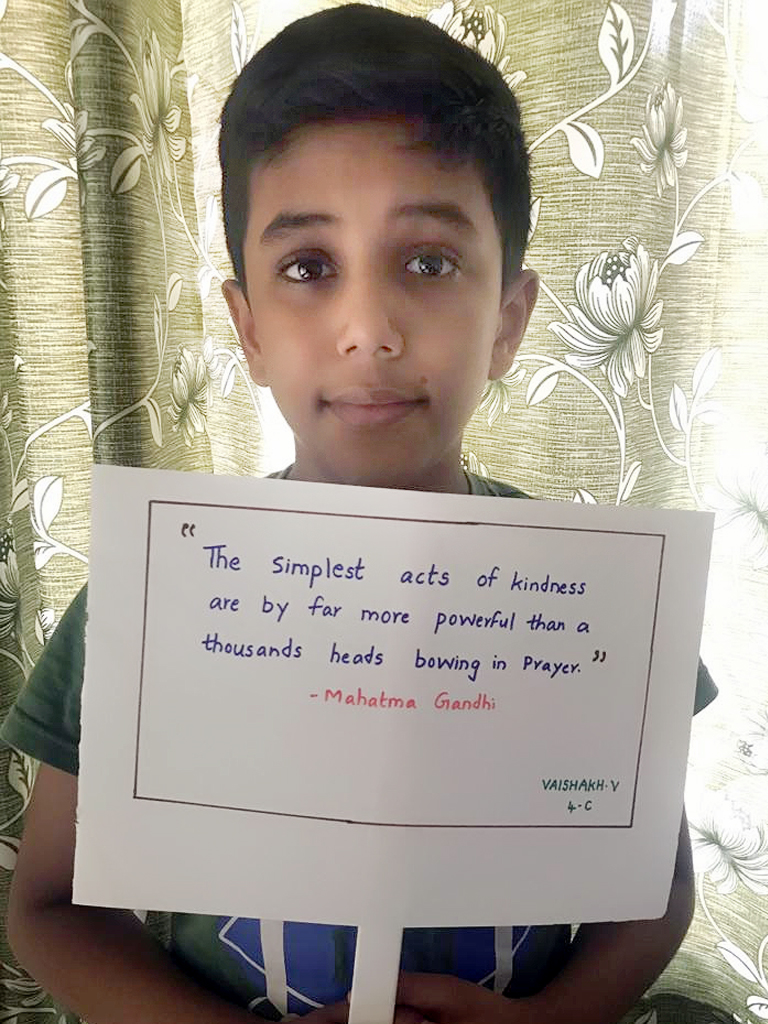 "The simplest acts of kindness
are by far more powerful than a
thousands heads bowing in Prayer."
- Mahatma Gandhi
VAISHAKH.V
4-C